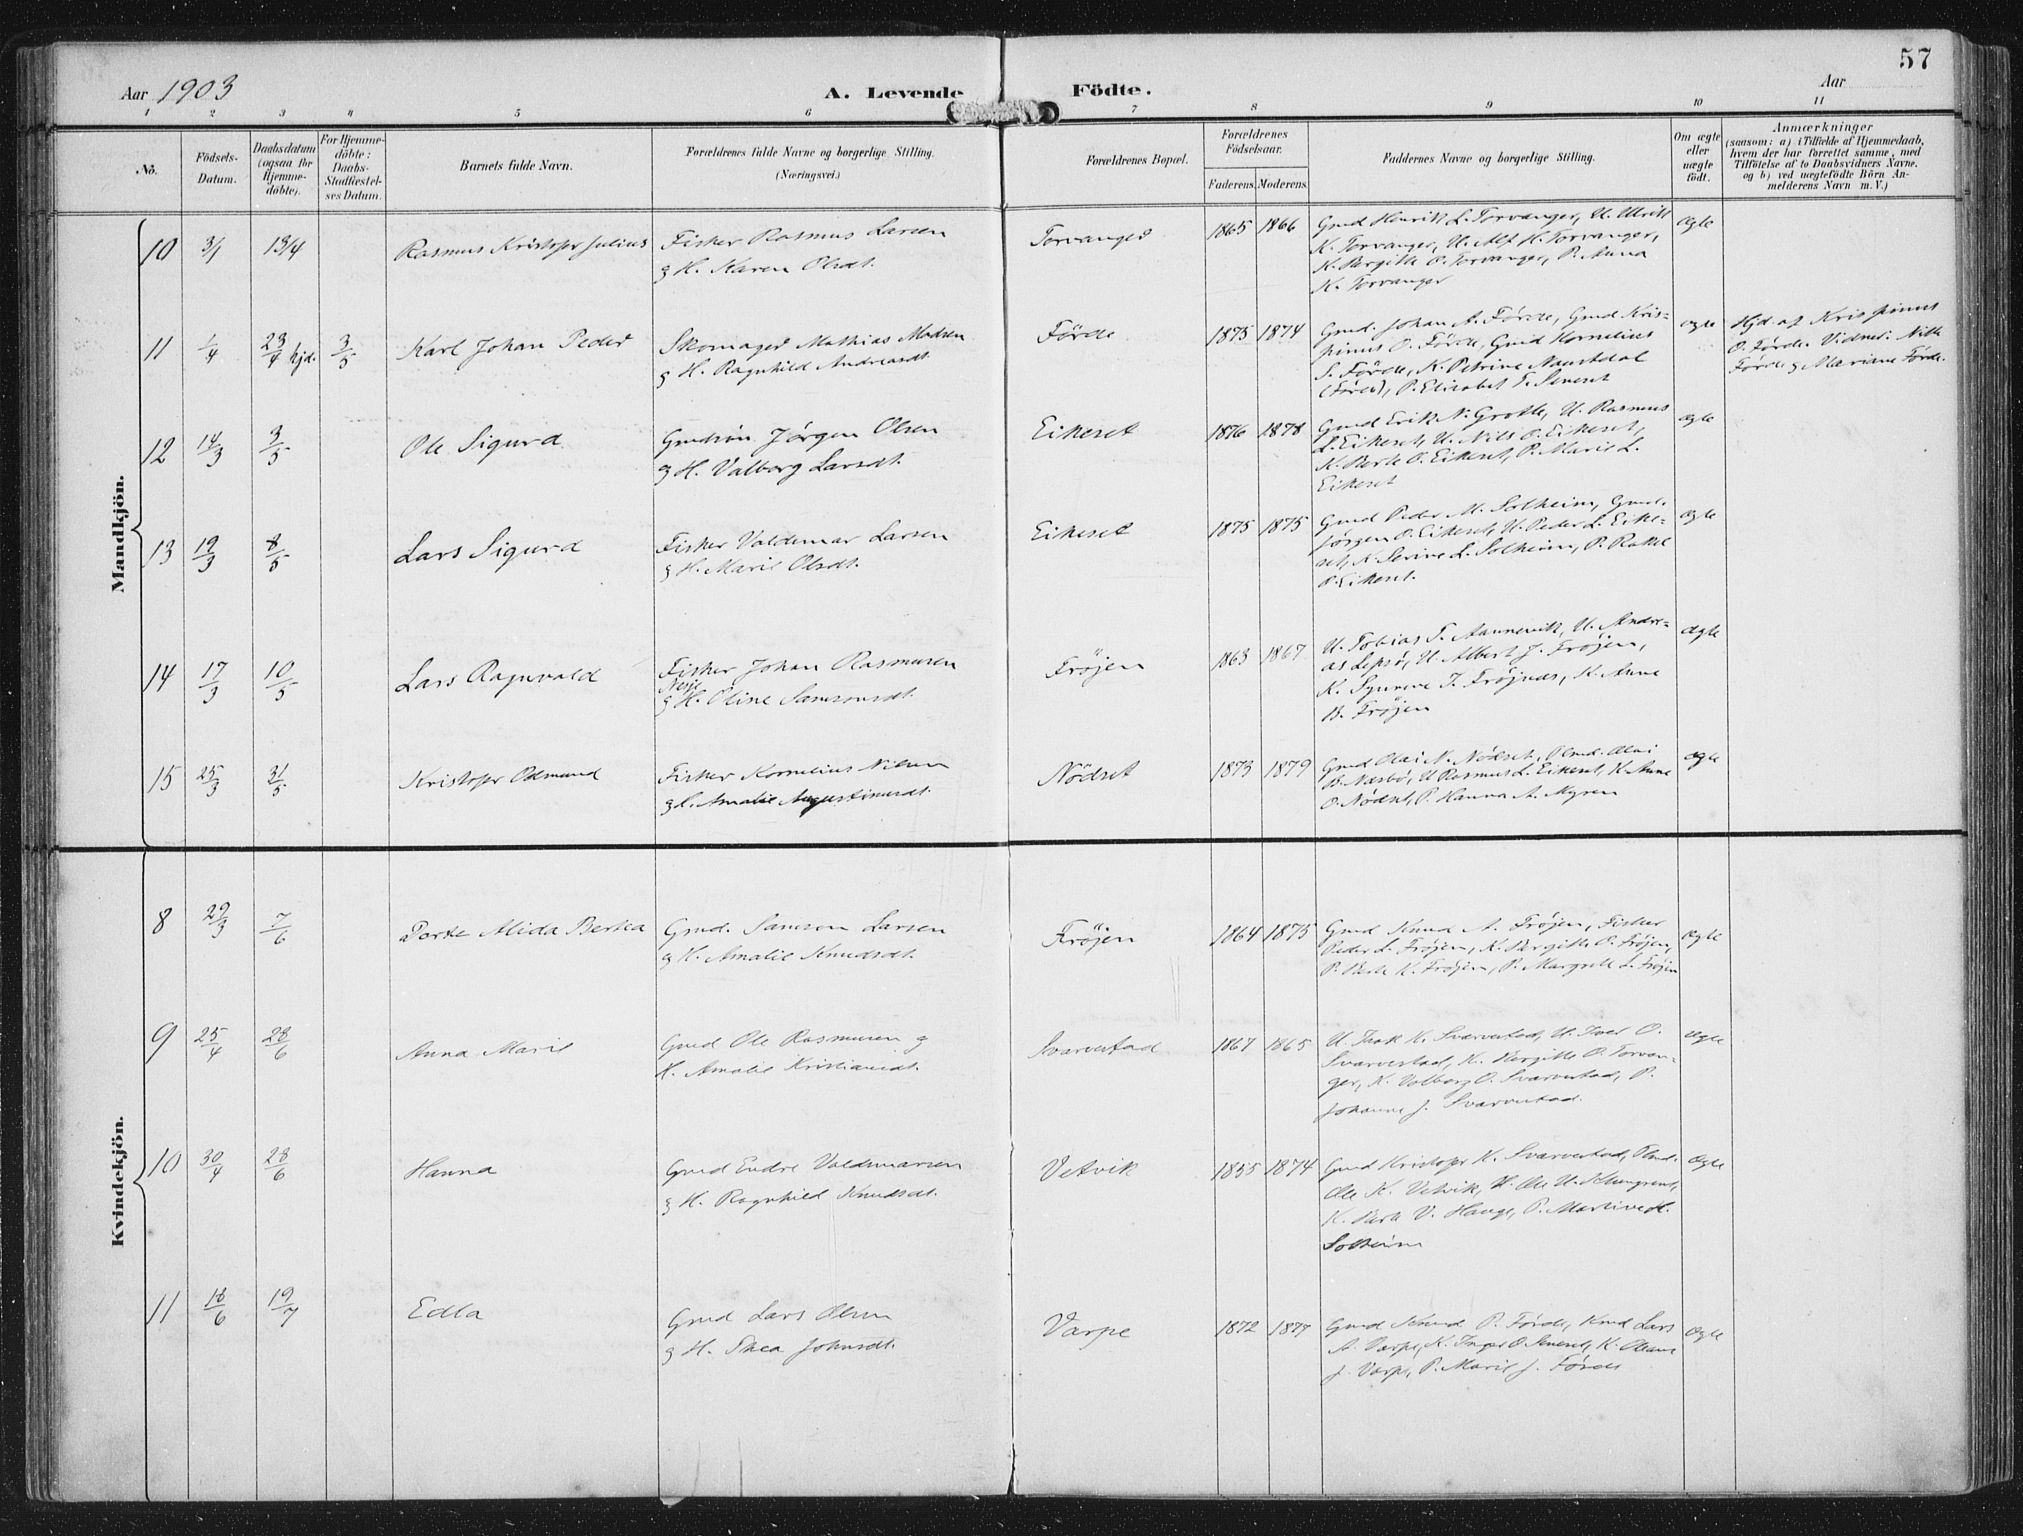 57
Aar 1903
A. Levende
Födte.
Aar
1 2 3 4 5 6 7 8 9 10 11
No.
Födsels-Datum.
Daabsdatum (ogsaa for Hjemme-döbte).
For Hjemme-döbte: Daabs-Stadfæstel-ses Datum.
Barnets fulde Navn.
Forældrenes fulde Navne og borgerlige Stilling.
(Næringsvei.)
Forældrenes Bopæl.
Forældrenes Födselsaar.
Faderens. Moderens.
Faddernes Navne og borgerlige Stilling.
Om ægte eller uægte födt.
Anmærkninger
(saasom: a) i Tilfælde af Hjemmedaab, hvem der har forrettet samme, med Tilföielse af to Daabsvidners Navne, og b) ved uægtefödte Börn Anmelderens Navn m. V.)
Mandkjön.
10 3/1 13/4 Rasmus Kristofer Julius
Fisker Rasmus Larsen
g H. Karen Olsdt.
Torvanger 1865 1866
Gmd Henrik L. Torvanger, U. Ulrik
K. Torvanger, U. Alf H. Torvanger,
K. Bergitte O. Torvanger, P. Anna
K. Torvanger
ægte
11 1/4 23/4 hjd. 3/5 Karl Johan Peder
Skomager Mathias Madsen
g H. Ragnhild Andreasdt.
Förde 1875 1874
Gmd. Johan A. Förde, Gmd Kris=
pinus O. Förde, Gmd Kornelius
S. Förde, K. Petrine Naustdal
(Förde), P. Elisabet T. Seneset
ægte
Hjd. af Krispinus
O. Förde. Vidner: Nille
Förde g Mariane Förde.
12 14/3 3/5 Ole Sigurd
Gmdsön Jørgen Olsen
g H. Valborg Larsdt.
Eikeset 1876 1878
Gmd Erik N. Grotle, U. Rasmus
L. Eikeset, U. Nils O. Eikeset,
K. Berte O. Eikeset, P. Marie L.
Eikeset
ægte
13 19/3 8/5 Lars Sigurd
Fisker Valdemar Larsen
g H. Marie Olsdt.
Eikeset 1875 1875
Gmd Peder M. Solheim, Gmd.
Jörgen O. Eikeset, U. Peder L. Eike=
set, K. Serine L. Solheim, P. Rakel
O. Eikeset.
ægte
14 17/3 10/5 Lars Ragnvald
Fisker Johan Rasmusen
Nesje
g H. Oline Samsonsdt.
Fröjen 1863 1867
U. Tobias T. Aannevik, U. Andre=
as Lepsö, U. Albert J. Fröjen,
K. Synneve J. Fröjnes, K. Anne
B. Fröjen
ægte
15 25/3 31/5 Kristofer Odmund
Fisker Kornelius Nilsen
g H. Amalie Augustinusdt.
Nödset 1873 1879
Gmd Olai N. Nödset, Plmd. Olai
B. Næsbö, U Rasmus L. Eikeset, K. Anne
O. Nödset, P. Hanna A. Myren
ægte
Kvindekjön.
8 29/3 7/6 Dorte Alida Bertea
Gmd. Samson Larsen
g H. Amalie Knudsdt.
Fröjen 1864 1875
Gmd Knud A. Fröjen, Fisker
Peder L. Fröjen, K. Bergitte O. Fröjen,
P. Berte K. Fröjen, P. Margrete L. Fröjen
ægte
9 25/4 28/6 Anna Marie
Gmd Ole Rasmusen g
H. Amalie Kristiansdt.
Svarvestad 1867 1865
U. Isak K. Svarvestad, U. Iver O.
Svarvestad, K. Bergitte O. Torvan=
ger, K. Valborg O. Svarvestad, P.
Johanne J. Svarvestad.
ægte
10 30/4 28/6 Hanna
Gmd Endre Valdemarsen
g H. Ragnhild Knudsdt.
Vetvik 1855 1874
Gmd Kristofer K. Svarvestad, Plmd.
Ole K. Vetvik, U. Ole U.
K. Berte V. Hauge, P. Martine H.
Solheim
ægte
11 18/6 19/7 Edla
Gmd Lars Olsen
g H. Thea Johnsdt.
Varpe 1872 1877
Gmd Knud P. Förde, Kmd Lars
A. Varpe, K. Inger O. Seneset, K. Oleane
J. Varpe, P. Marie J. Förde
ægte